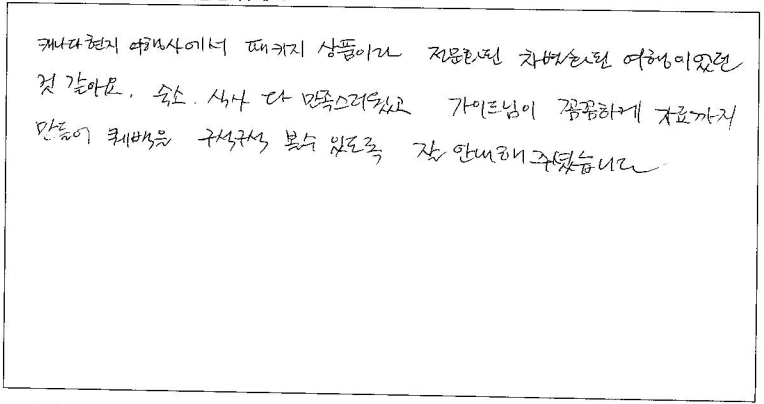 캐나다 현지 여행사에서 패키지 상품이라 전문화된 차별화된 여행이었던
것 같아요. 숙소. 식사 다 만족스러웠고 가이드님이 꼼꼼하게 자료까지
만들어 퀘백을 구석구석 볼수 있도록 잘 안내해 주셨습니다